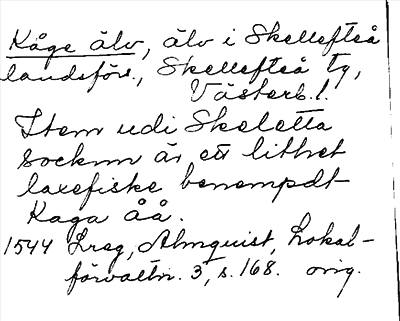 Kåge älv, älv i Skellefteå
landsförs., Skellefteå tg,
Västerb. l.
Item udi Skeletta
socknn är ett lithet
laxefiske benempdt
Kaga åå.
1544 Lreg, Almquist, Lokal-
förvaltn. 3, s. 168. orig.